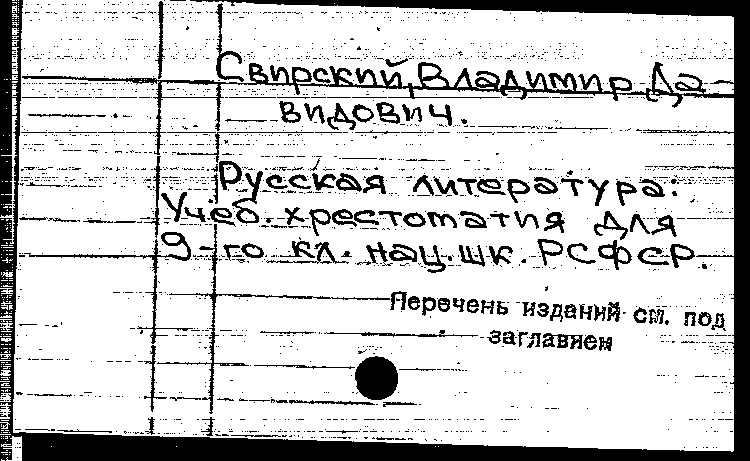 Свирский, Владимир Да-
видович.
Русская литература:
Учеб. хрестоматия для
9-го кл. нац. шк. РСФСР.
Перечень изданий см. под
заглавием